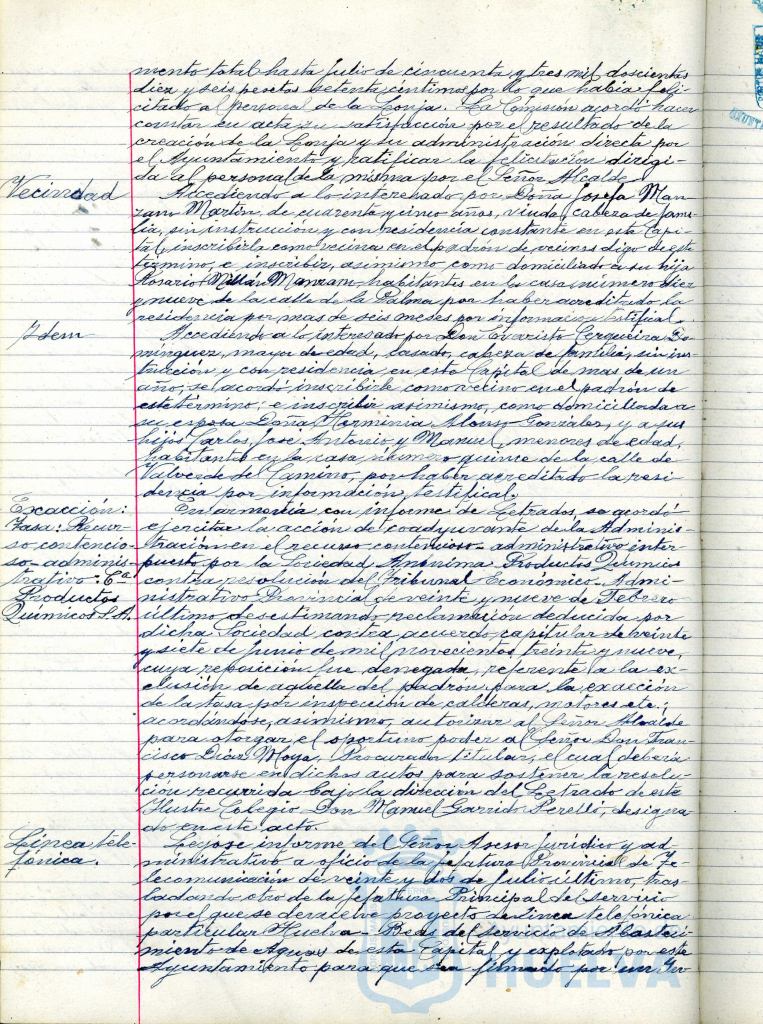 mento total hasta Julio de cincuenta y tres mil doscientas
diez y seis pesetas setenta céntimos por lo que había feli-
citado al personal de la Lonja. La Comisión acordó hacer
constar en acta su satisfacción por el resultado de la
creación de la Lonja y su administración directa por
el Ayuntamiento y ratificar la felicitación dirigi-
da al personal de la misma por el Señor Alcalde.
Vecindad
Accediendo a lo interesado por Doña Josefa Man-
zano Martín, de cuarenta y cinco años, viuda, cabeza de fami-
lia, sin instrucción y con residencia constante en esta Capi-
tal, inscribirla como vecina en el padrón de vecinos digo de este
término, e inscribir, asimismo como domiciliado a su hija
Rosario Millán Manzano habitantes en la casa número diez
y nueve de la calle de la Palma por haber acreditado la
residencia por mas de seis meses por información testifical.
Idem
Accediendo a lo interesado por Don Evaristo Cerqueira Do-
minguez, mayor de edad, casado, cabeza de familia, sin ins-
trucción y con residencia en esta Capital de mas de un
año, se acordó inscribirle como vecino en el padrón de
este término; e inscribir asimismo, como domiciliada a
su esposa Doña Herminia Alonso González, y a sus
hijos Carlos, José Antonio y Manuel, menores de edad,
habitantes en la casa número quince de la calle de
Valverde del Camino, por haber acreditado la resi-
dencia por información testifical.
Exacción:
Tasa: Recur-
so contencio-
so-adminis-
trativo: Cª
Productos
Químicos S.A.
En armonía con informe de Letrados, se acordó
ejercitar la acción de coadyuvante de la Adminis-
tración en el recurso contencioso-administrativo inter-
puesto por la Sociedad Anónima Productos Químicos
contra resolución del Tribunal Económico-Admi-
nistrativo Provincial de veinte y nueve de Febrero
último desestimando reclamación deducida por
dicha Sociedad contra acuerdo capitular de veinte
y siete de Junio de mil novecientos treinta y nueve,
cuya reposición fue denegada, referente a la ex-
clusión de aquella del padron para la exacción
de la tasa por inspección de calderas, motores etc.;
acordándose, asimismo, autorizar al Señor Alcalde
para otorgar el oportuno poder al Señor Don Fran-
cisco Díaz Moya, Procurador titular, el cual deberá
personarse en dichos autos para sostener la resolu-
ción recurrida bajo la dirección del Letrado de este
Ilustre Colegio Don Manuel Garrido Perelló, designa-
do en este acto.
Línea tele-
fónica.
Leyose informe del Señor Asesor Jurídico y ad-
ministrativo a oficio de la Jefatura Provincial de Te-
lecomunicación de veinte y dos de Julio último, tras-
ladando otro de la Jefatura Principal del servicio
por el que se devuelve proyecto de línea telefónica
particular Huelva- del servicio de Abasteci-
miento de Aguas de esta Capital y explotado por este
Ayuntamiento para que sea firmado por un In-
HUELVA